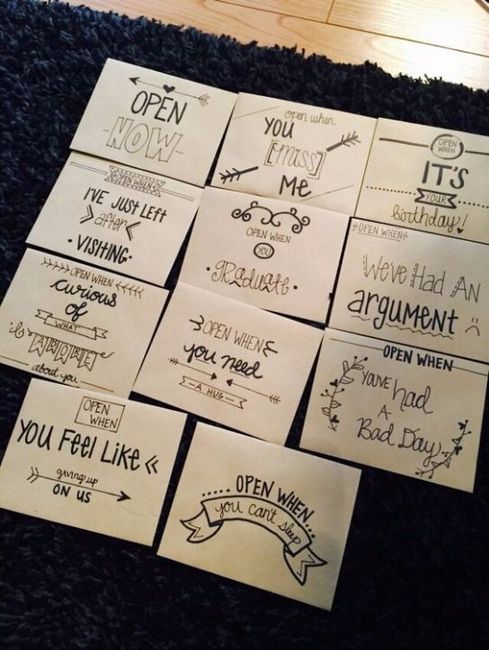 OPEN
NOW
open when
YOU
[miss]
Me
OPEN
WHEN
IT'S
YOUR
birthday!
OPEN WHEN
I'VE JUST LEFT
after
VISITING
OPEN WHEN
YOU
GRADUATE
OPEN WHEN
We've Had AN
argument :(
OPEN WHEN
curious
of
WHAT
is
ADORE
about you
OPEN WHEN
you need
A HUG
OPEN WHEN
YOU'VE had
A
Bad Day
OPEN
WHEN
YOU Feel Like
giving up
ON US
OPEN WHEN
you can't sleep